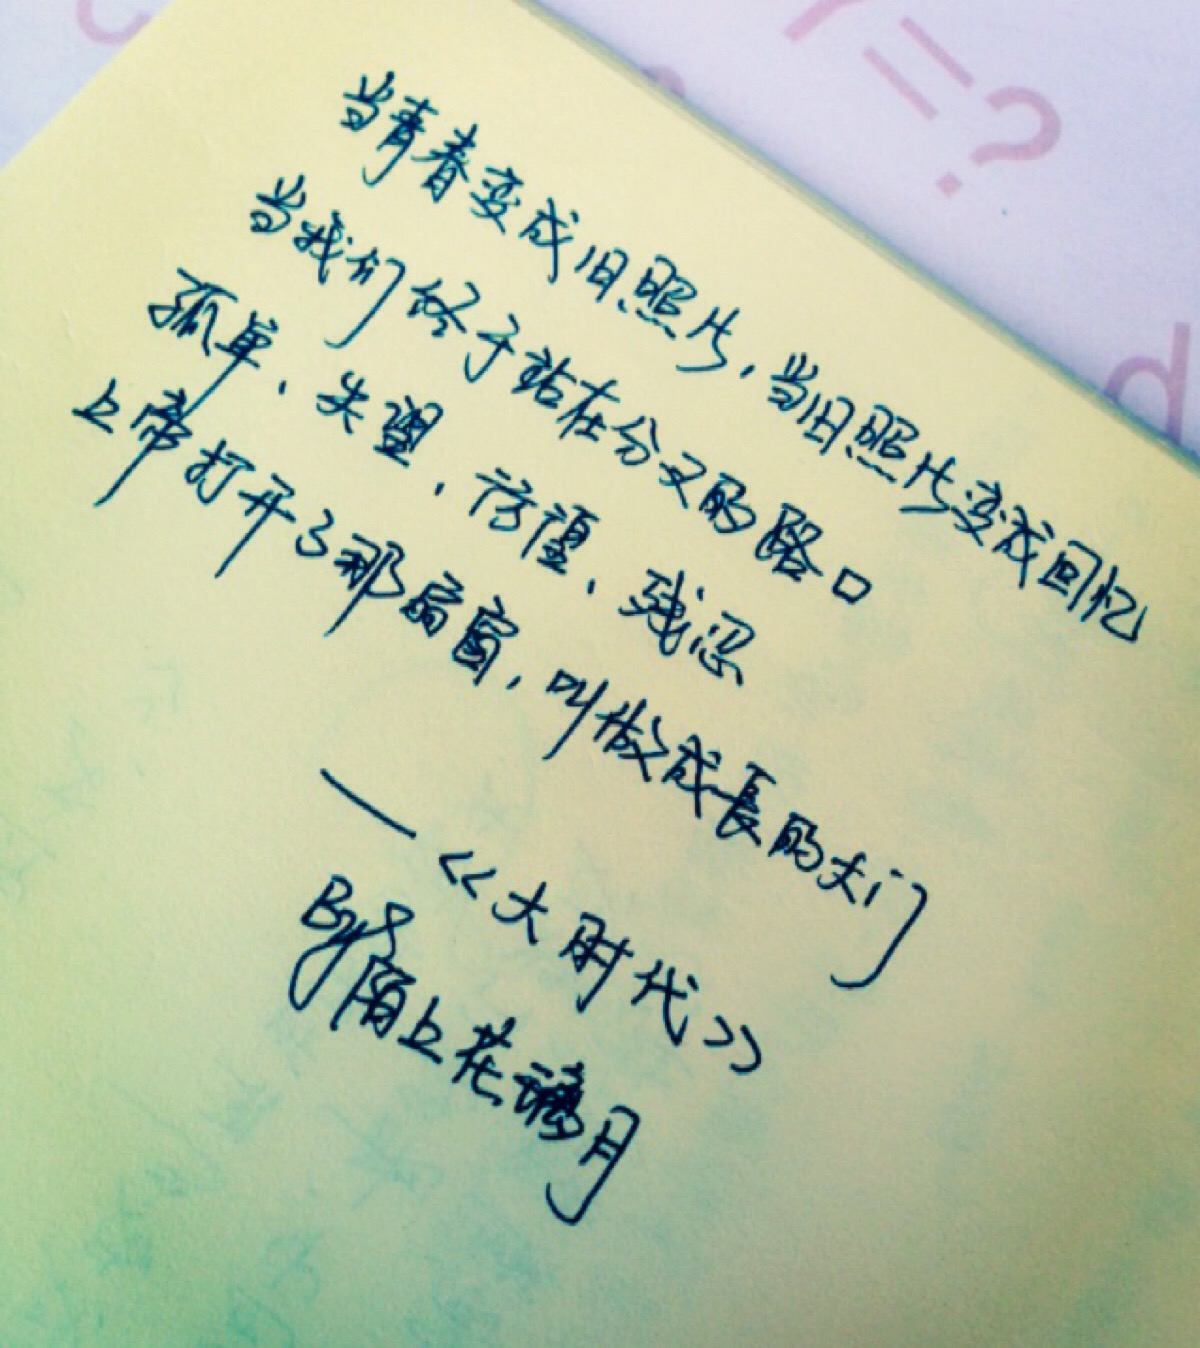 当青春变成旧照片，当旧照片变成回忆
当我们终于站在分叉的路口
孤单、失望、彷徨、残忍
上帝打开了那扇窗，叫做成長的大门
—《大时代》
By 陌上花 月
=?
d